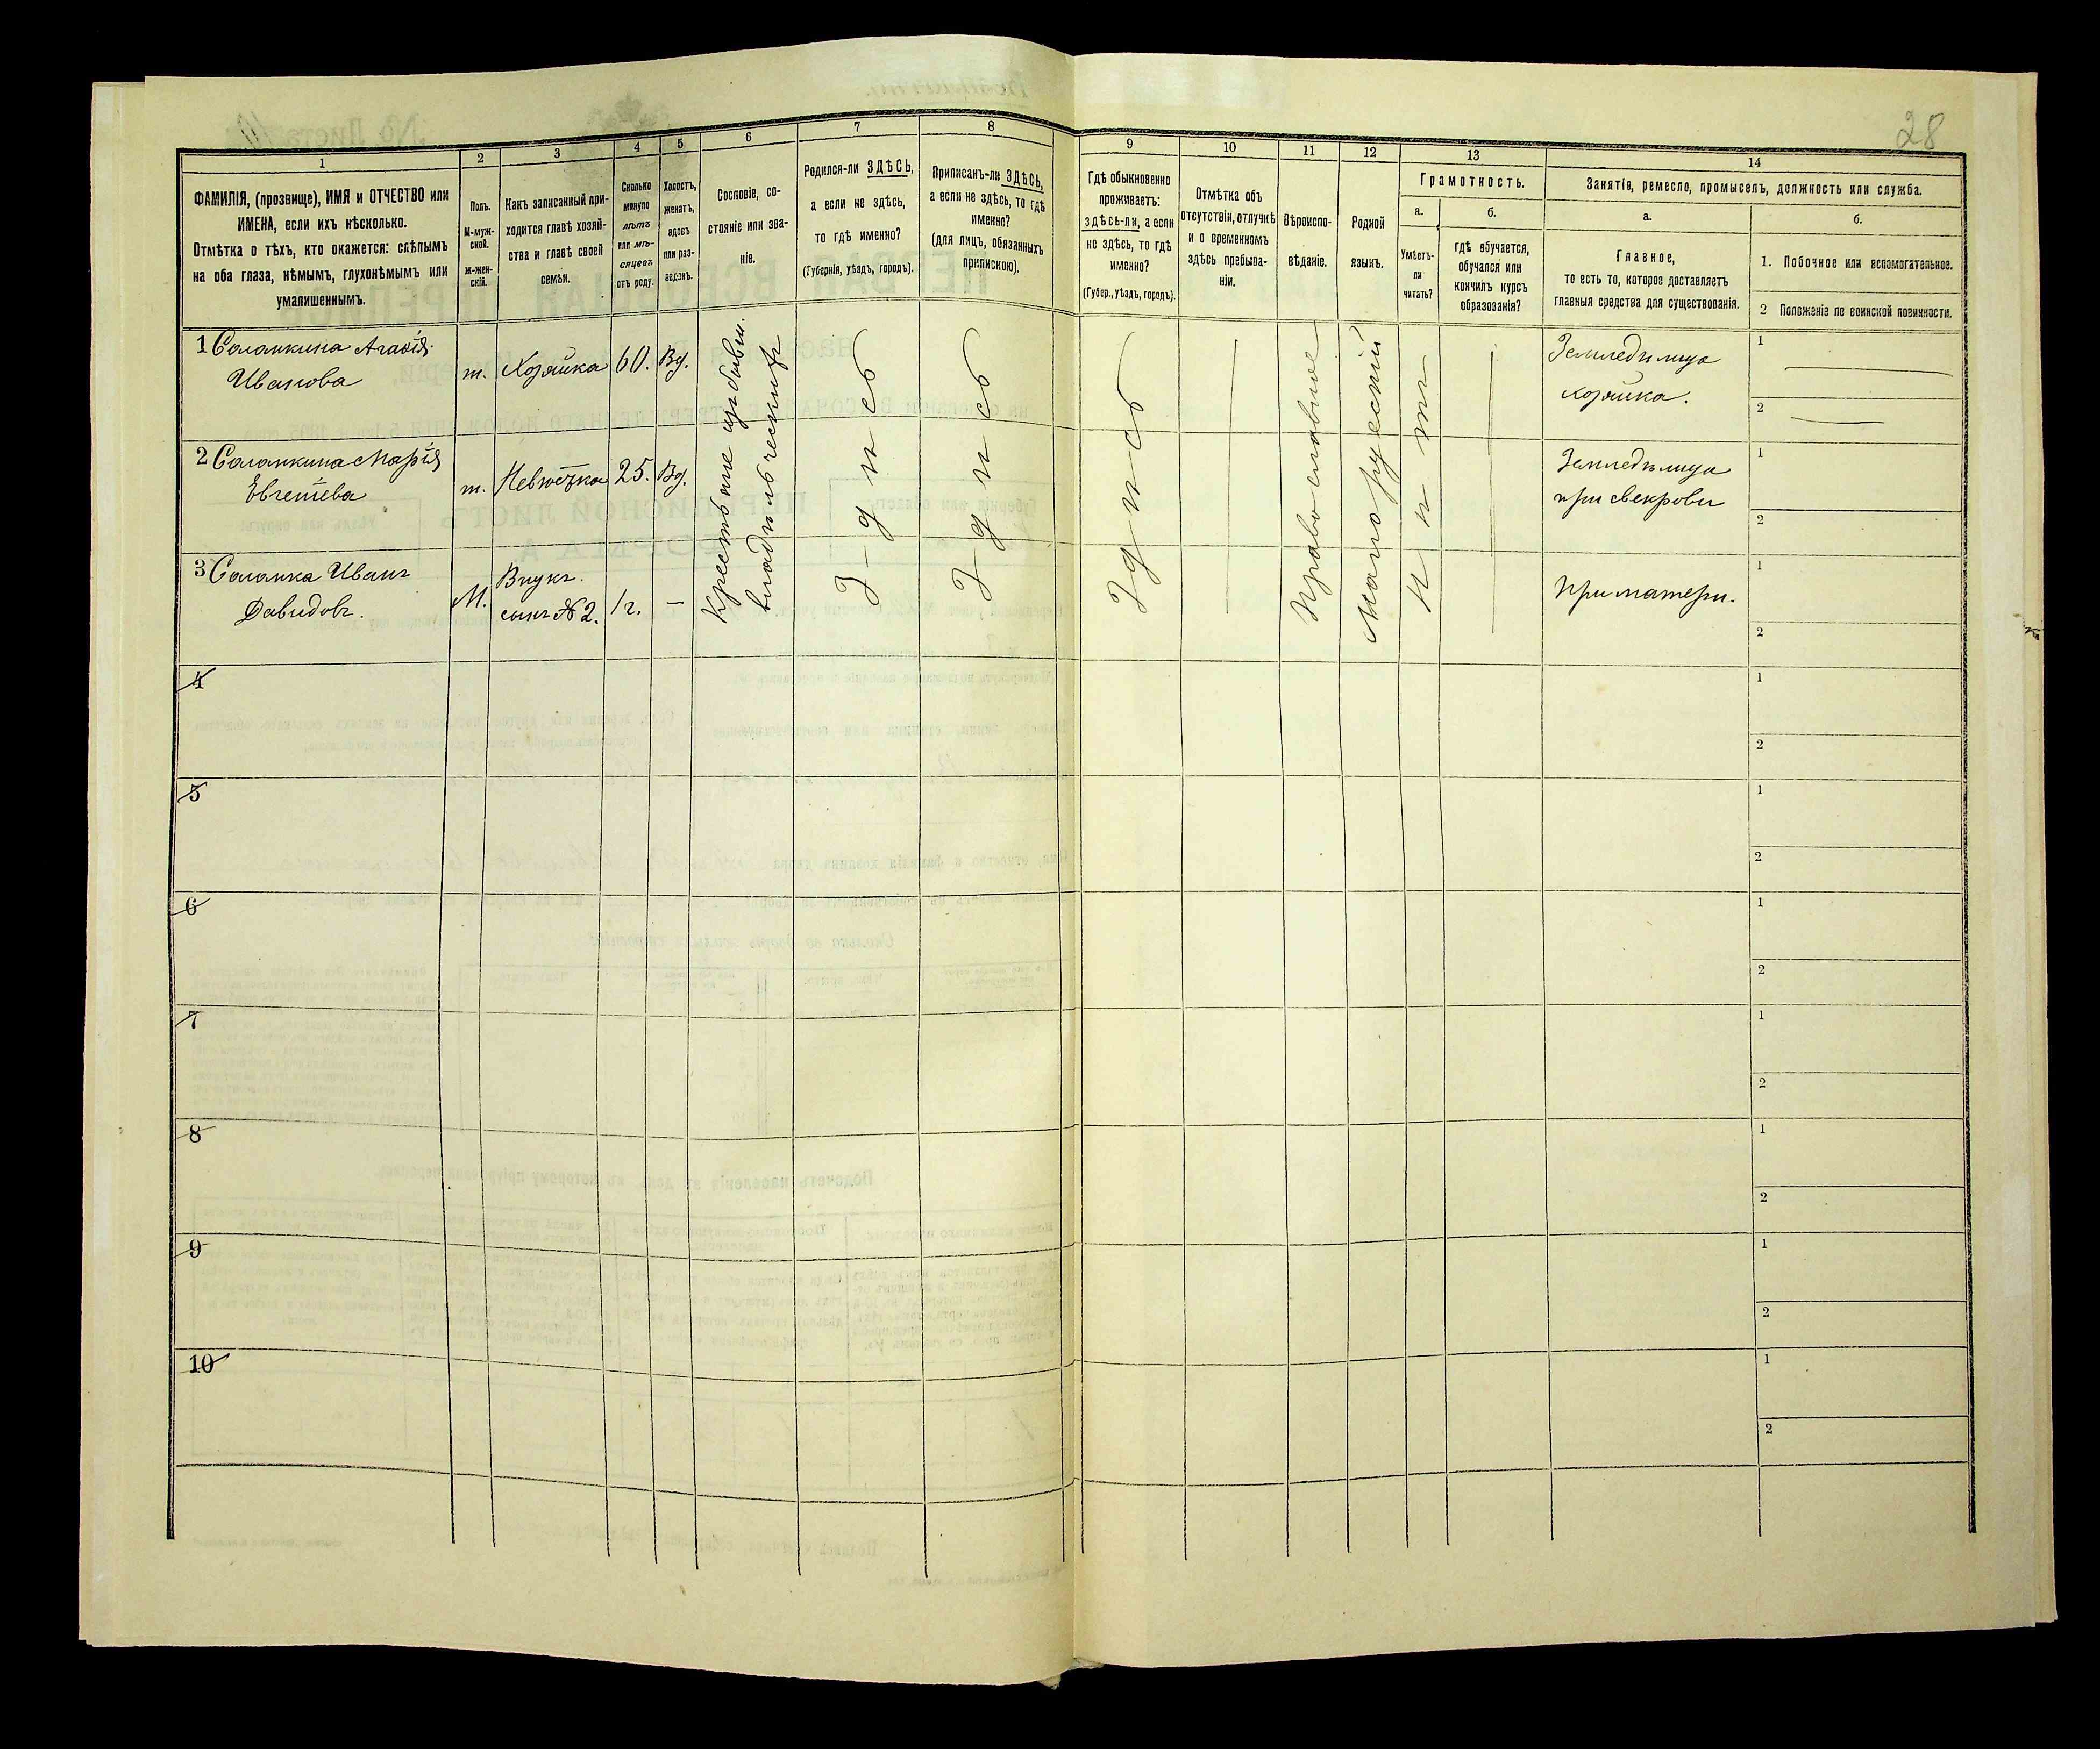 28
1
2
3
4
5
6
7
8
9
10
11
12
13
14
ФАМИЛІЯ, (прозвище), ИМЯ и ОТЧЕСТВО или
ИМЕНА, если ихъ нѣсколько.
Отмѣтка о тѣхъ, кто окажется: слѣпымъ
на оба глаза, нѣмымъ, глухонѣмымъ или
умалишеннымъ.
Полъ.
М-муж-
ской.
Ж-жен-
скій.
Какъ записанный при-
ходится главѣ хозяй-
ства и главѣ своей
семьи.
Сколько
минуло
лѣтъ
или мѣ-
сяцевъ
отъ роду.
Холостъ,
женатъ,
вдовъ
или раз-
веденъ.
Сословіе, со-
стояніе или зва-
ніе.
Родился-ли ЗДѢСЬ,
а если не здѣсь,
то гдѣ именно?
(Губернія, уѣздъ, городъ).
Приписанъ-ли ЗДѢСЬ,
а если не здѣсь, то гдѣ
именно?
(для лицъ, обязанныхъ
припискою).
Гдѣ обыкновенно
проживаетъ:
здѣсь-ли, а если
не здѣсь, то гдѣ
именно?
(Губер., уѣздъ, городъ).
Отмѣтка объ
отсутствіи, отлучкѣ
и о временномъ
здѣсь пребыва-
ніи.
Вѣроиспо-
вѣданіе.
Родной
языкъ.
Грамотность.
а.
Умѣетъ-
ли
читать?
б.
гдѣ обучается,
обучался или
кончилъ курсъ
образованія?
Занятіе, ремесло, промыселъ, должность или служба.
а.
Главное,
то есть то, которое доставляетъ
главныя средства для существованія.
б.
1. Побочное или вспомогательное.
2 Положеніе по воинской повинности.
1 Соланкина Агафія
Иванова
ж.
Хозяйка
60.
Вд.
Крестьяне изъ бывш.
владѣльческихъ
Здѣсь
Здѣсь
Здѣсь
Православное
Малорусскій
нѣтъ
Земледѣлица
хозяйка.
1
2
2 Соланкина Марія
ж.
Невѣстка
25.
Вд.
Земледѣлица
при свекрови
1
2
3 Соланка Иванъ
Давидовъ.
М.
Внукъ.
сынъ №2.
1г.
–
При матери.
1
2
4
1
2
5
1
2
6
1
2
7
1
2
8
1
2
9
1
2
10
1
2